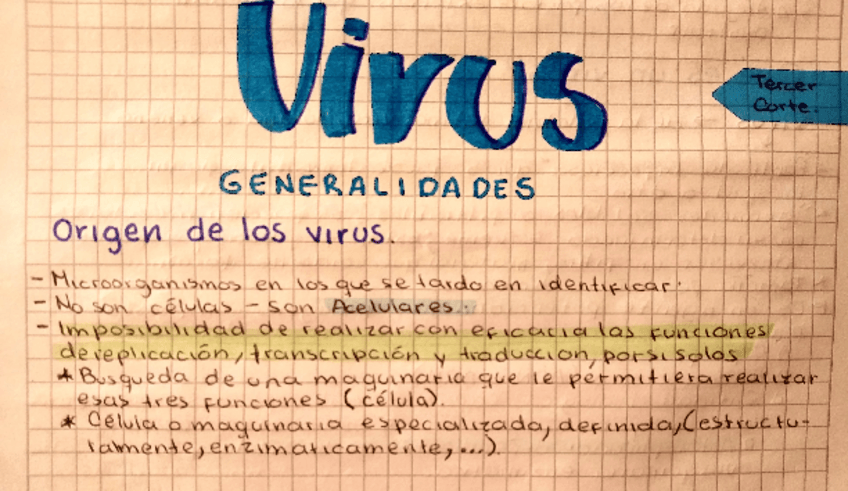 Virus
Tercer
Corte.
GENERALIDADES
Origen de los virus.
- Microorganismos en los que se tardo en identificar.
- No son células - son Acelulares.
- Imposibilidad de realizar con eficacia las funciones
de replicación, transcripción y traducción, por si solos
* Busqueda de una maquinaria que le permitiera realizar
esas tres funciones (célula).
* Célula o maquinaria especializada, definida, (estructu-
ralmente, enzimaticamente, ...).